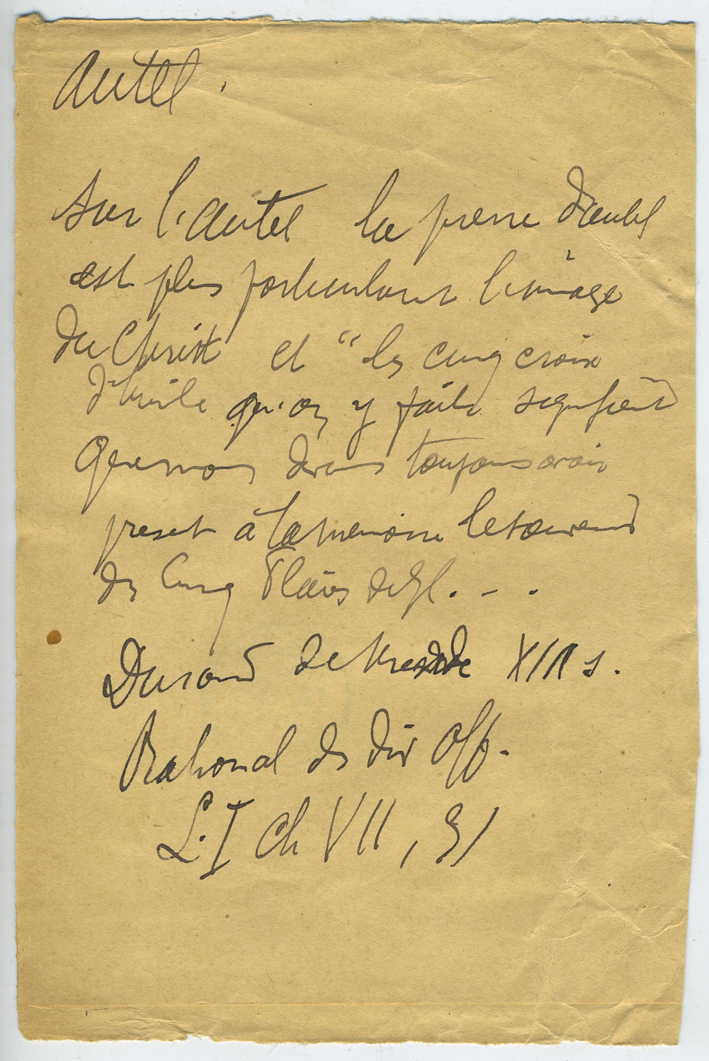 Autel.
Sur l'autel la pierre d'autel
est plus l'image
du Christ et "les cinq croix
d'huile qu'on y faite signifient
que nous devons toujours avoir
present à la memoire le souvenir
des Cinq Plaies de
Durand de XIII s.
Rational des div Off.
L. I ch VII, 31